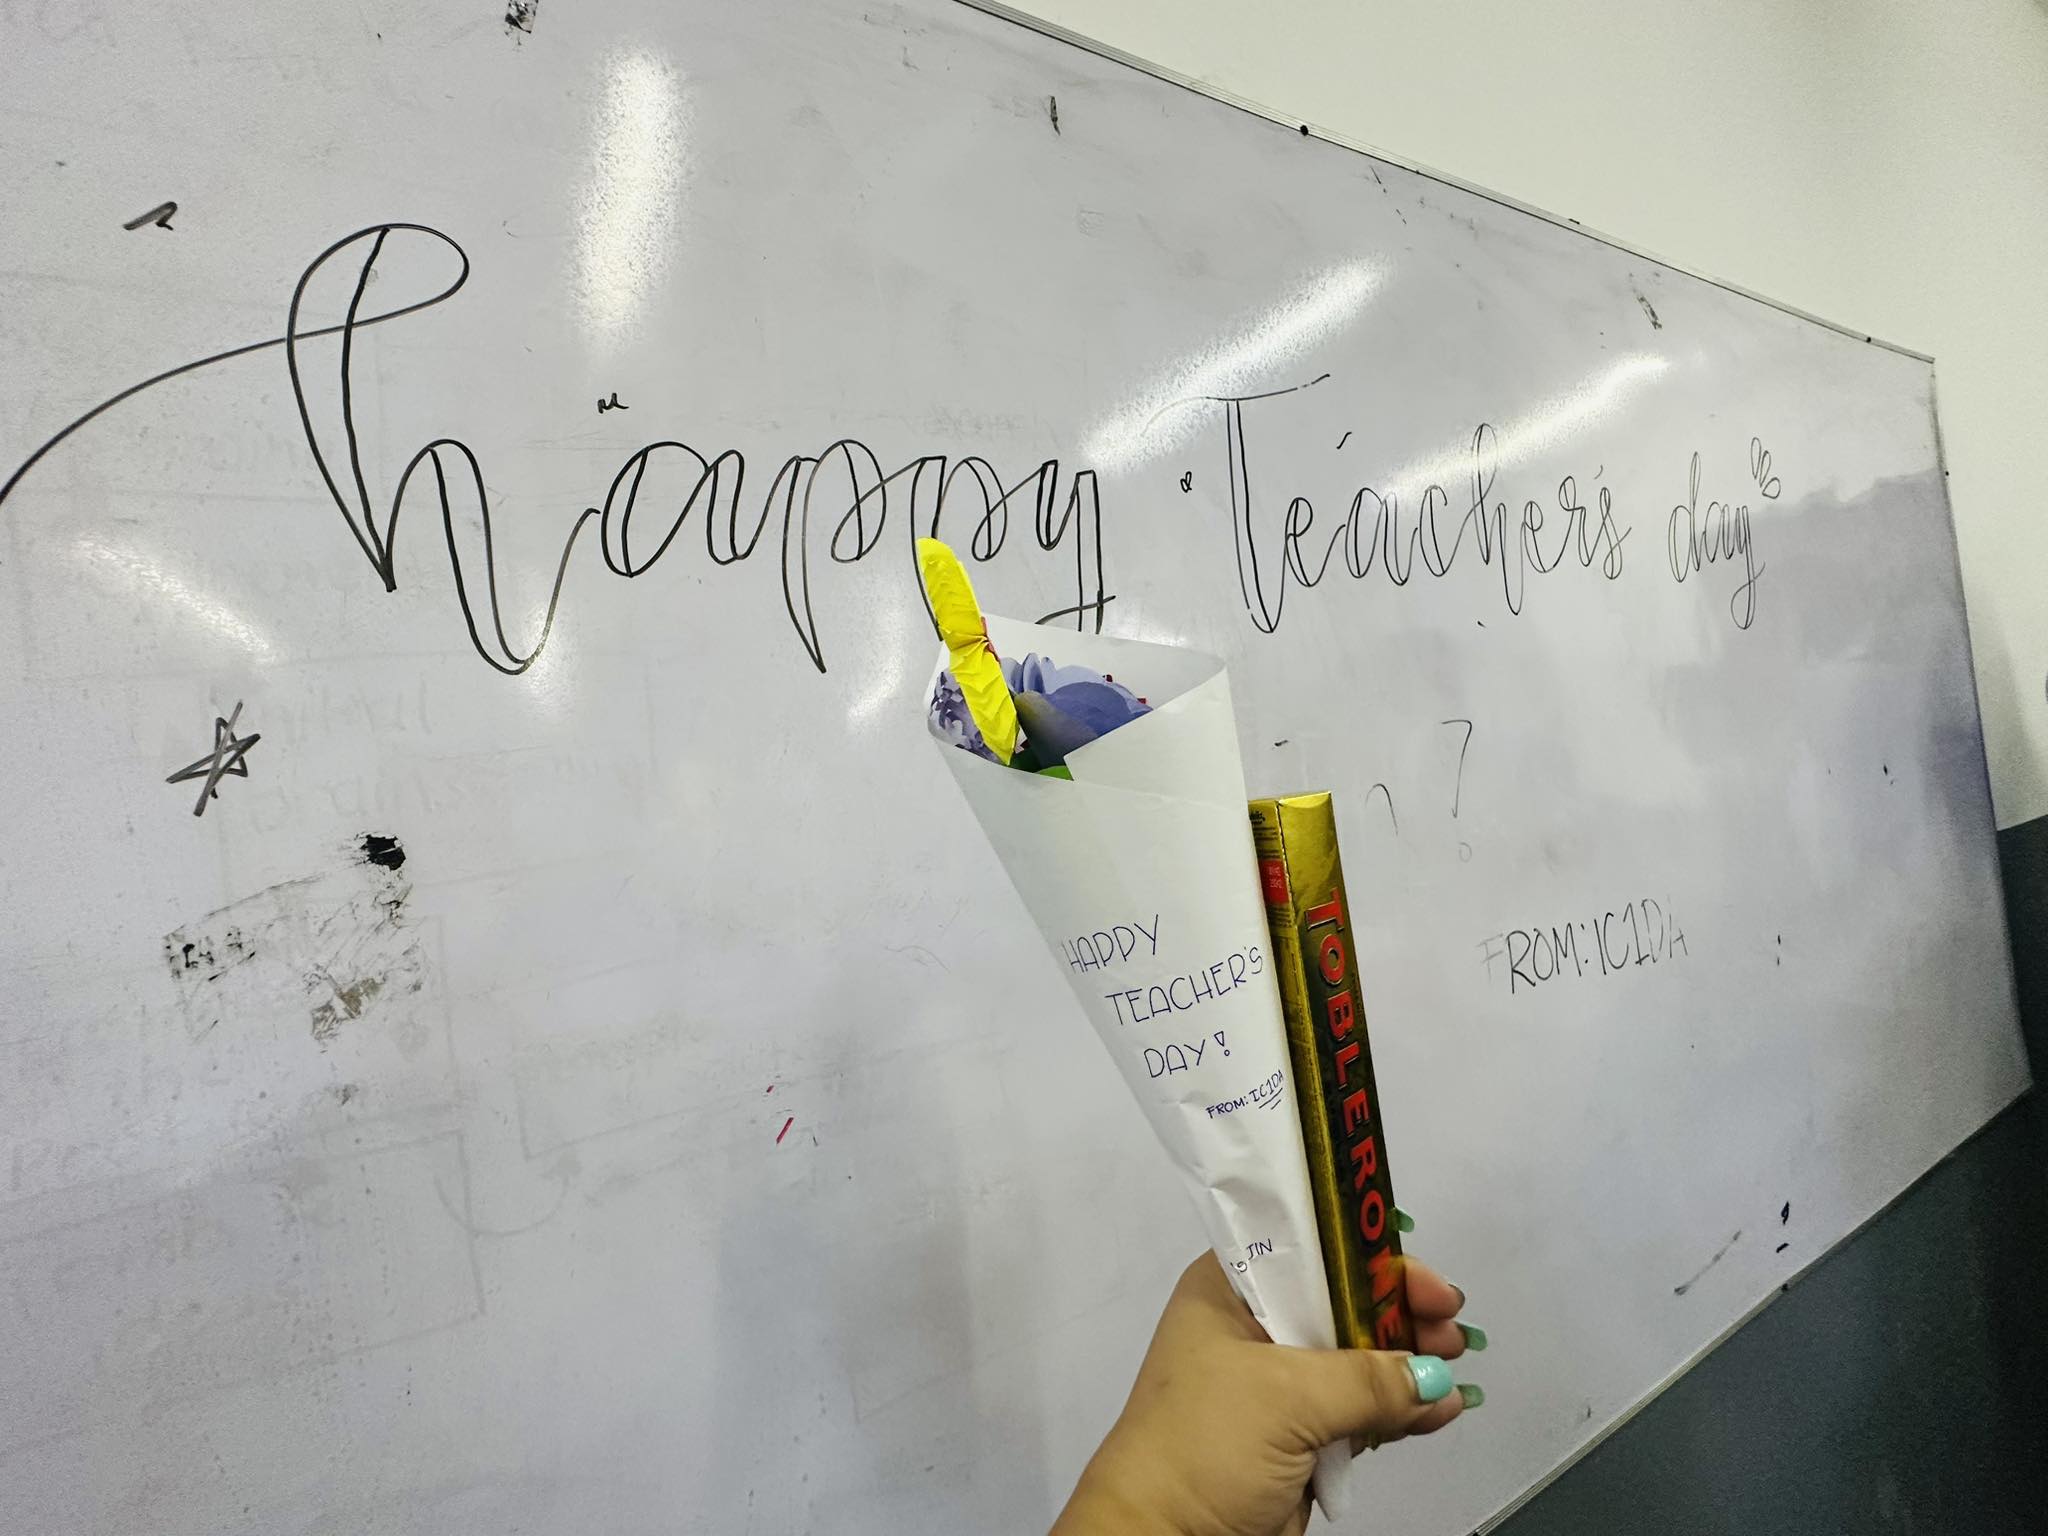 happy Teacher's day
?
FROM: IC1DA
HAPPY
TEACHER'S
DAY!
FROM: IC1DA
JIN
TOBLERONE